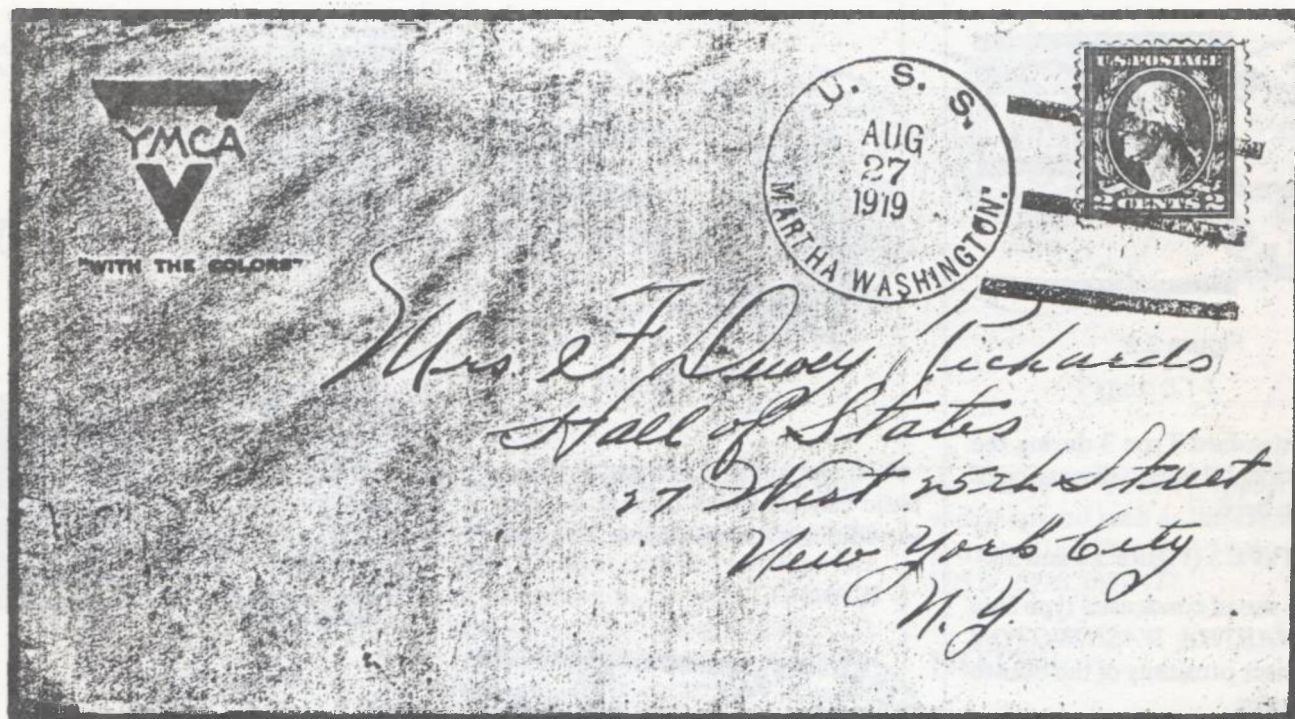 YMCA
"WITH THE COLORS"
U. S. S.
AUG
27
1919
MARTHA WASHINGTON.
U.S. POSTAGE
2 CENTS 2
Mrs. F. Dewey Richards
Hall of States
27 West 25th Street
New York City
N.Y.